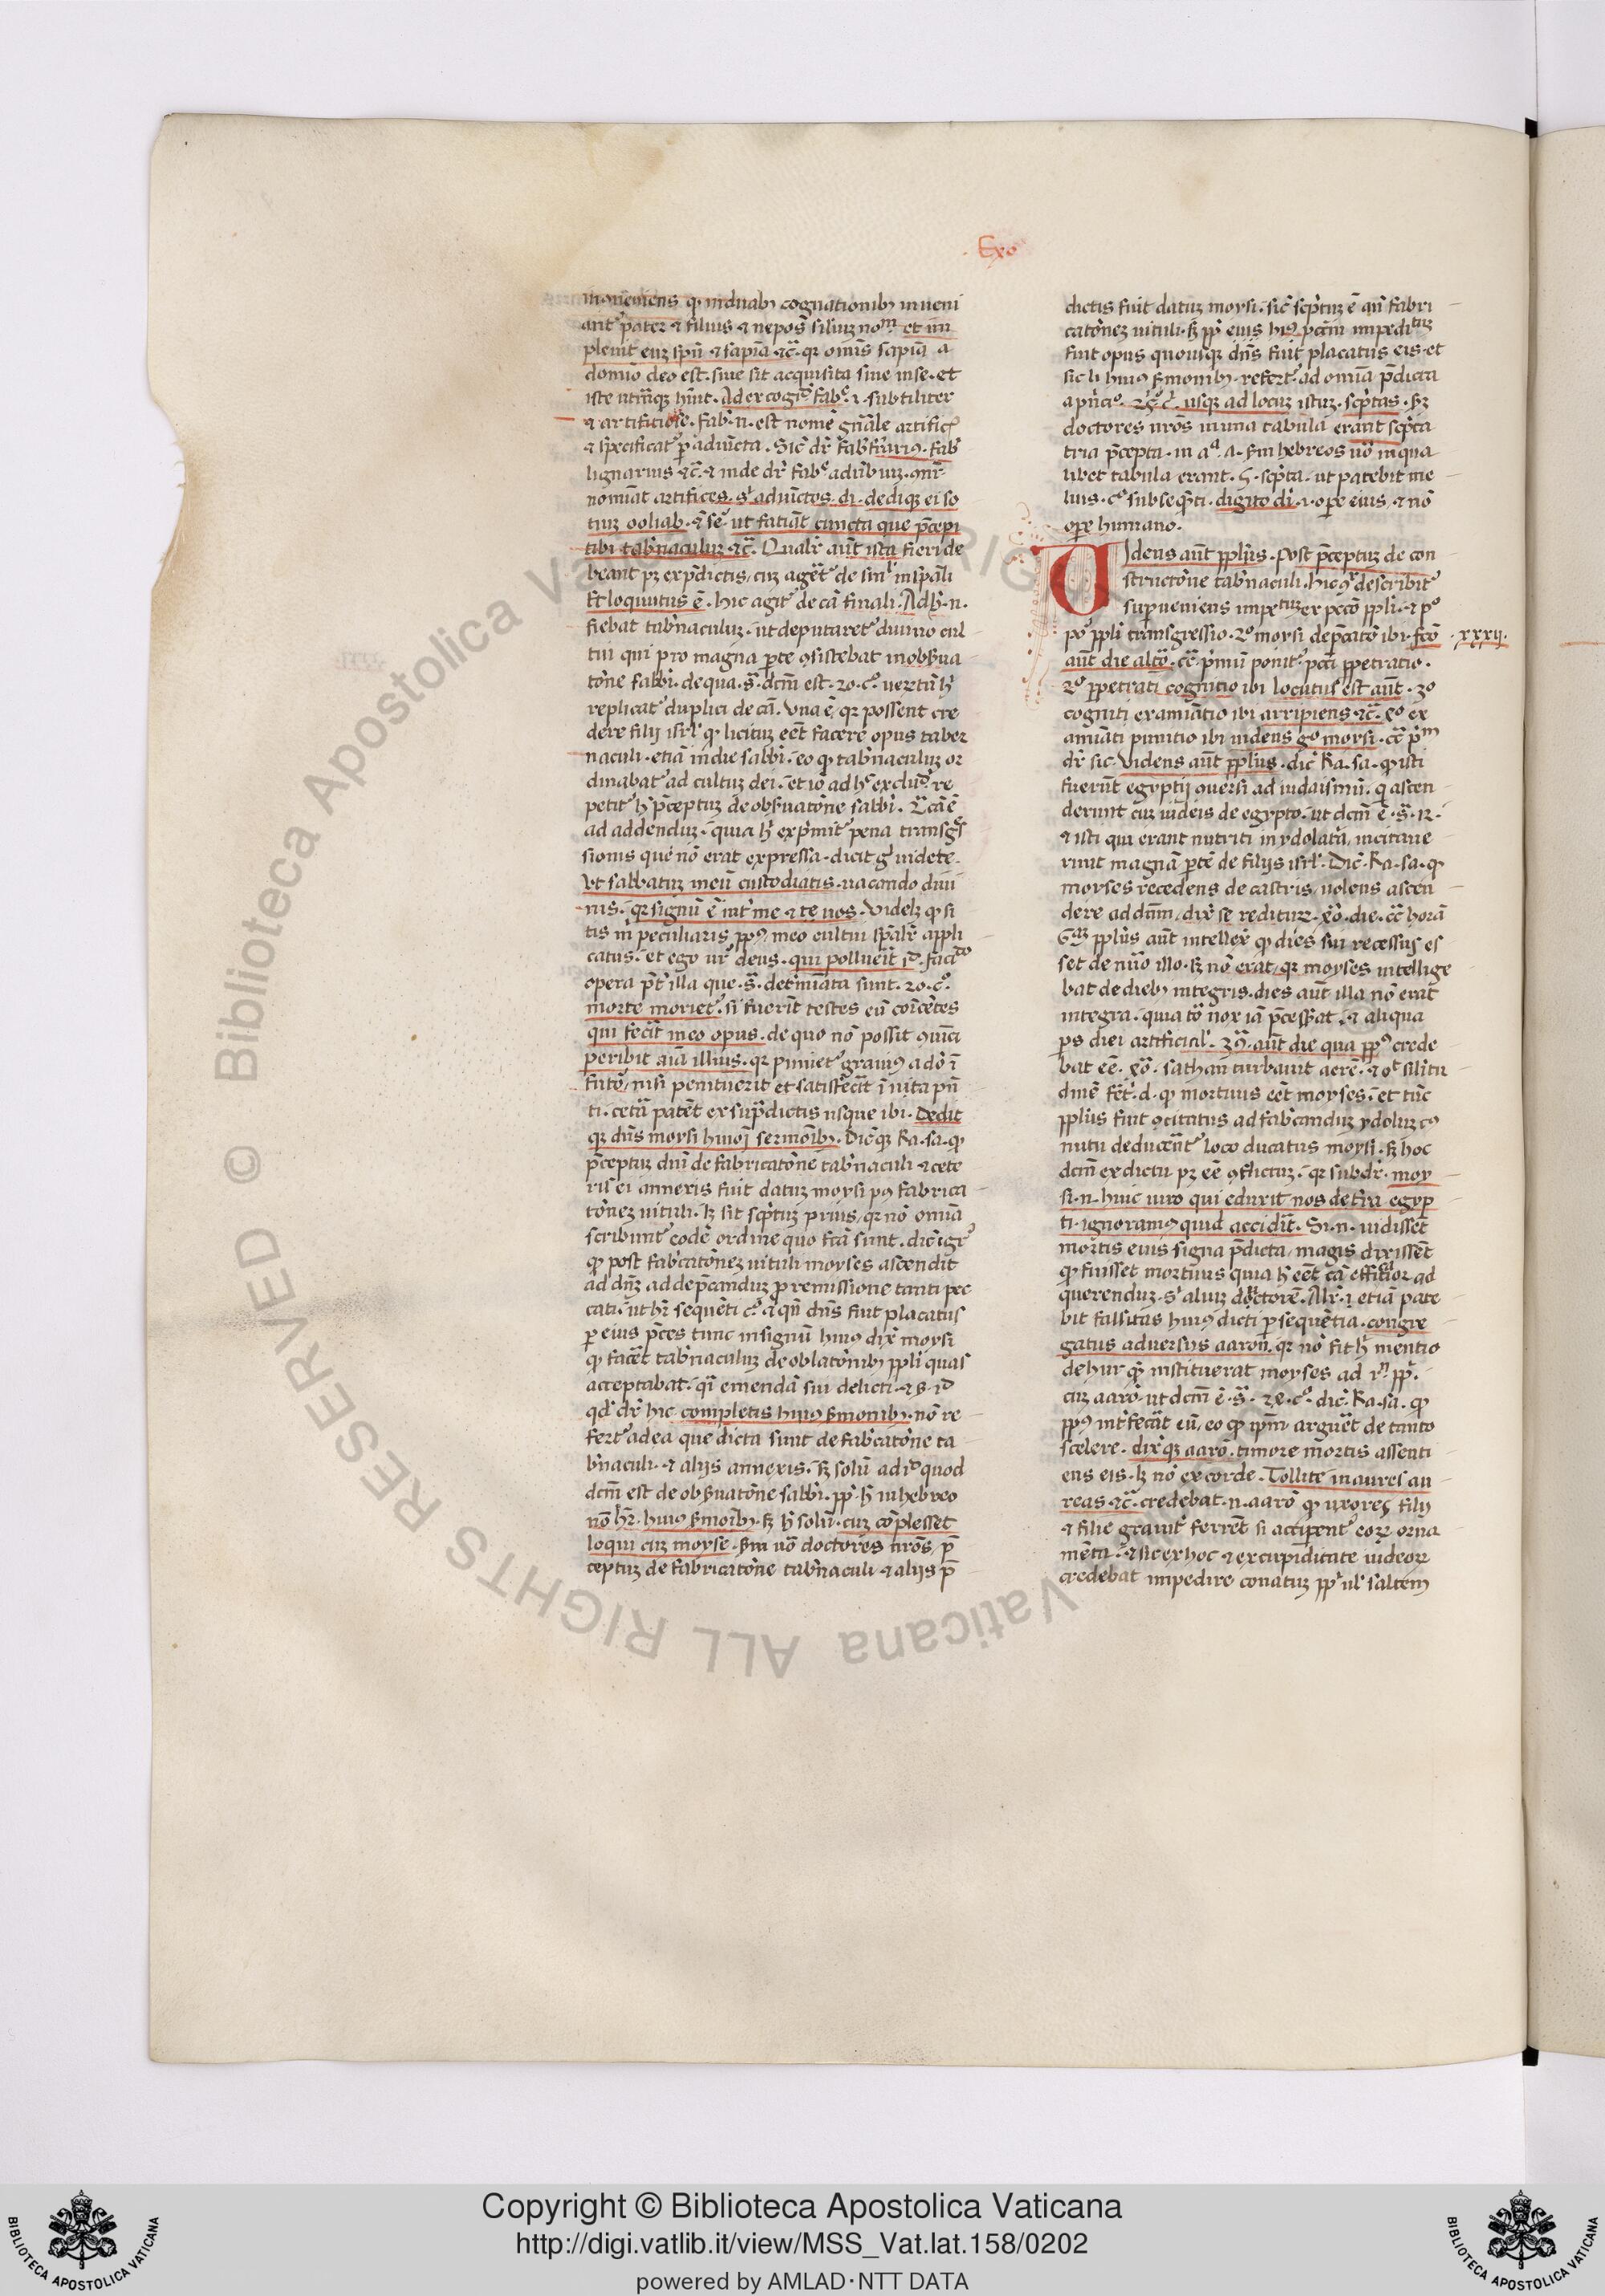 Exo
inconueniens q᷒ in duab9 cognationib9 inueni
ant᷒ pater ⁊ filius ⁊ nepos siliuz noīs et im
pleuit euz spū ⁊ sapīa ⁊c̄. qr omīs sapīa a
domīo deo est. siue sit acquisita siue infusa. et
iste utrūqꝫ hūit. Ad excogit᷒ fab᷒. i. subtiliter
⁊ artificiose. fab᷒. n. est nomē gn̄ale artificꝫ
⁊ specificat᷒ p adiūcta. Sic̄ dr̄ fab᷒ ferrariꝰ. fab᷒
lignarius ⁊c̄. ⁊ inde dr̄
nomīat artifices. dediqꝫ ei so
tiuz ooliab. ut fatiāt cuncta que p̄cepi
tibi tab᷒naculuz ⁊c̄. Qualr̄ aūt ista fieri de
beant pꝫ ex p̄dictis, cuz aget᷒ de sin̄l in sp̄ali
Et loquutus ē. hic agit᷒ de cā finali. Ad h᷒. n.
fiebat tab᷒naculuz. ut deputaret᷒ diuino cul
tui qui pro magna p̄te ꝯsistebat in obs̄ua
tōne sabbi. de qua. s̄. dcm̄ est. 20. c᷒. uertū h᷒
replicat᷒ duplici de cā. Vna ē, qr possent cre
dere filij isrl᷒ ꝙ licituz eēt facere opus taber
naculi. etiā in die sabbi. eo ꝙ tab᷒naculuz or
dinabat᷒ ad cultuz dei. et iō ad h᷒ excludꝫ re
petit᷒ h᷒ p̄ceptuz de obs̄uatōne sabbi. 2ᵃ cā ē
ad addenduz. quia h᷒ exp̄mit᷒ pena transg᷒s
sionis que nō erat expressa. dicit g᷒ uidete.
Vt sabbatuz meū custodiatis. uacando diui
nis. qr signū ē int᷒ me ⁊ te uos. Videlꝫ ꝙ si
tis m̄ peculiaris pp̄ꝰ, meo cultui sp̄alr̄ appli
catus. et ego ur̄ deus. qui polluerit id. faciēdo
opera p̄t᷒ illa que. s̄. det᷒mīata sunt. 20. c᷒.
morte moriet᷒. si fuerit testes eū coīcētes
qui fecit in eo opus. de quo nō possit ꝯuīci
peribit aīa illius. qr puniet᷒ grauiꝰ a dō ī
futō, nisi penituerit et satisfecit ī uita p̄n
ti. cetā patēt ex sup̄dictis usque ibi. Dedit
qꝫ dn̄s moysi huiōi sermoīb9. Dic̄qꝫ Ra. sa. ꝙ
p̄ceptuz dn̄i de fabricatōne tab᷒naculi ⁊ cete
ris ei annexis fuit datuz moysi pꝰ fabrica
tōnez uituli. lꝫ sit sc̄ptuz prius, qr nō omīa
scribunt᷒ eodē ordine quo fc̄a sunt. dic̄ igr᷒
ꝙ post fab᷒catōnez uituli moyses ascendit
ad dn̄z ad dep̄canduz p remissione tanti pec
cati. ut hr̄ sequēti c᷒. ⁊ qn̄ dn̄s fuit placatus
p eius p̄ces tunc in signū huiꝰ dix᷒ moysi
ꝙ facēt tab᷒naculuz de oblatōnib9 ppl̄i quas
acceptabat. qꝫ emendā sui delicti. ⁊ s. id
qd᷒ dr̄ hic. completis huiꝰ s̄monib9. nō re
fert᷒ ad ea que dicta sunt de fab᷒catōne ta
b᷒naculi. ⁊ alijs annexis. sꝫ solū ad id quod
dcm̄ est de obs̄uatōne sabbi. pp̄ h᷒ in hebreo
nō hr̄. huiꝰ s̄moīb9. sꝫ h᷒ solū. cuz cōplesset
loqui cuz moyse. s̄m uō doctores nr̄os, p̄
ceptuz de fabricatōne tab᷒naculi ⁊ alijs p̄
dictis fuit datuz moysi. sic̄ sc̄ptuz ē añ fabri
catōnez uituli. sꝫ pp̄ eius huiꝰ pc̄cm̄ impedituz
fuit opus quousqꝫ dn̄s fuit placatus eis. et
sic li huiꝰ s̄monib9. refert᷒ ad omīa p̄dicta
a pn̄cio. usqꝫ ad locuz istuz. sc̄ptas. sꝫ
doctores nr̄os in una tabula erant sc̄pta
tria p̄cepta. in aᵃ. s̄m hebreos uō in qua
libet tabula erant. 5. sc̄pta. ut patebit me
lius. c᷒. subseq̄ti. digito di᷒. i. ope eius, ⁊ nō
ope humano.
Videns aūt ppl̄us. Post p̄ceptuz de con
structōne tab᷒naculi. hic ꝯ᷒ describit᷒
supueniens impetuz ex pc̄co ppl̄i. ⁊ pº
pº ppl̄i transgressio. 2º moysi dep̄catō ibi. fctō
xxxij.
aūt die altō. cc̄. p᷒mū ponit᷒ pc̄ci ppetratio.
2º ppetrati cognitio ibi locutus est aūt. 3º
cogniti examīatio ibi arripiens ⁊c̄. 4º ex
amīati punitio ibi uidens g᷒ moysi. cc̄ p᷒m
dr̄ sic. Videns aūt ppl̄us. dic̄ Ra. sa. ꝙ isti
fuerūt egyptij ꝯuersi ad iudaismū. q᷒ ascen
derunt cuz iudeis de egypto. ut dcm̄ ē. s̄. 12.
⁊ isti qui erant nutriti in ydolat᷒a, incitaue
runt magnā p̄tē de filijs isrl᷒. Dic̄. Ra. sa. ꝙ
moyses recedens de castris, uolens ascen
dere ad dn̄m, dix᷒ se redituz. 40. die. cc̄ horā
6ᵃᵐ ppl̄us aūt intellex᷒ ꝙ dies sui recessus es
set de nūo illo. sꝫ nō erat, qr moyses intellige
bat de dieb9 integris. dies aūt illa nō erat
integra. quia tō nox iā p̄cesserat, ⁊ aliqua
ps diei artificial᷒. aūt die qua pp̄ꝰ crede
bat eē. 40. sathan turbauit aerē. ⁊ silitu
dinē fēt. d. ꝙ mortuus eēt moyses. et tūc
ppl̄us fuit ꝯcitatus ad fab᷒canduz ydoluz cꝰ
nutu deducēt᷒ loco ducatus moysi. sꝫ hoc
dcm̄ ex dictu pꝫ eē ꝯfictuz. qr subdr̄. moy
si. n. huic uiro qui eduxit nos de tr̄a egyp
ti. ignoramꝰ quid acciderit. Si. n. uidisset
mortis eius signa p̄dicta, magis dixissēt
ꝙ fuisset mortuus quia h᷒ eēt cā efficatior ad
querenduz. s᷒ aliuz doctorē. Alr̄. i. etiā pate
bit falsitas huiꝰ dicti p sequentia. congre
gatus aduersus aaron. qr nō fit h᷒ mentio
de hur q᷒ instituerat moyses ad
cuz aarō. ut dcm̄ ē. s̄. 24. c᷒. dic̄. Ra. sa. ꝙ
pp̄ꝰ int᷒fecāt eū, eo ꝙ ip̄m arguēt de tanto
scelere. dix᷒qꝫ aarō. timore mortis assenti
ens eis. lꝫ nō ex corde. Tollite inaures au
reas ⁊c̄. credebat. n. aarō ꝙ uxores filij
⁊ filie grauit᷒ ferrēt si acciperent᷒ eoꝝ orna
mēta. ⁊ sic ex hoc ⁊ ex cupiditate iudeoꝝ
credebat impedire conatuz pp̄ ul᷒ saltem
Copyright © Biblioteca Apostolica Vaticana
http://digi.vatlib.it/view/MSS_Vat.lat.158/0202
powered by AMLAD·NTT DATA
BIBLIOTECA APOSTOLICA VATICANA
BIBLIOTECA APOSTOLICA VATICANA
© Biblioteca Apostolica Vaticana ALL RIGHTS RESERVED